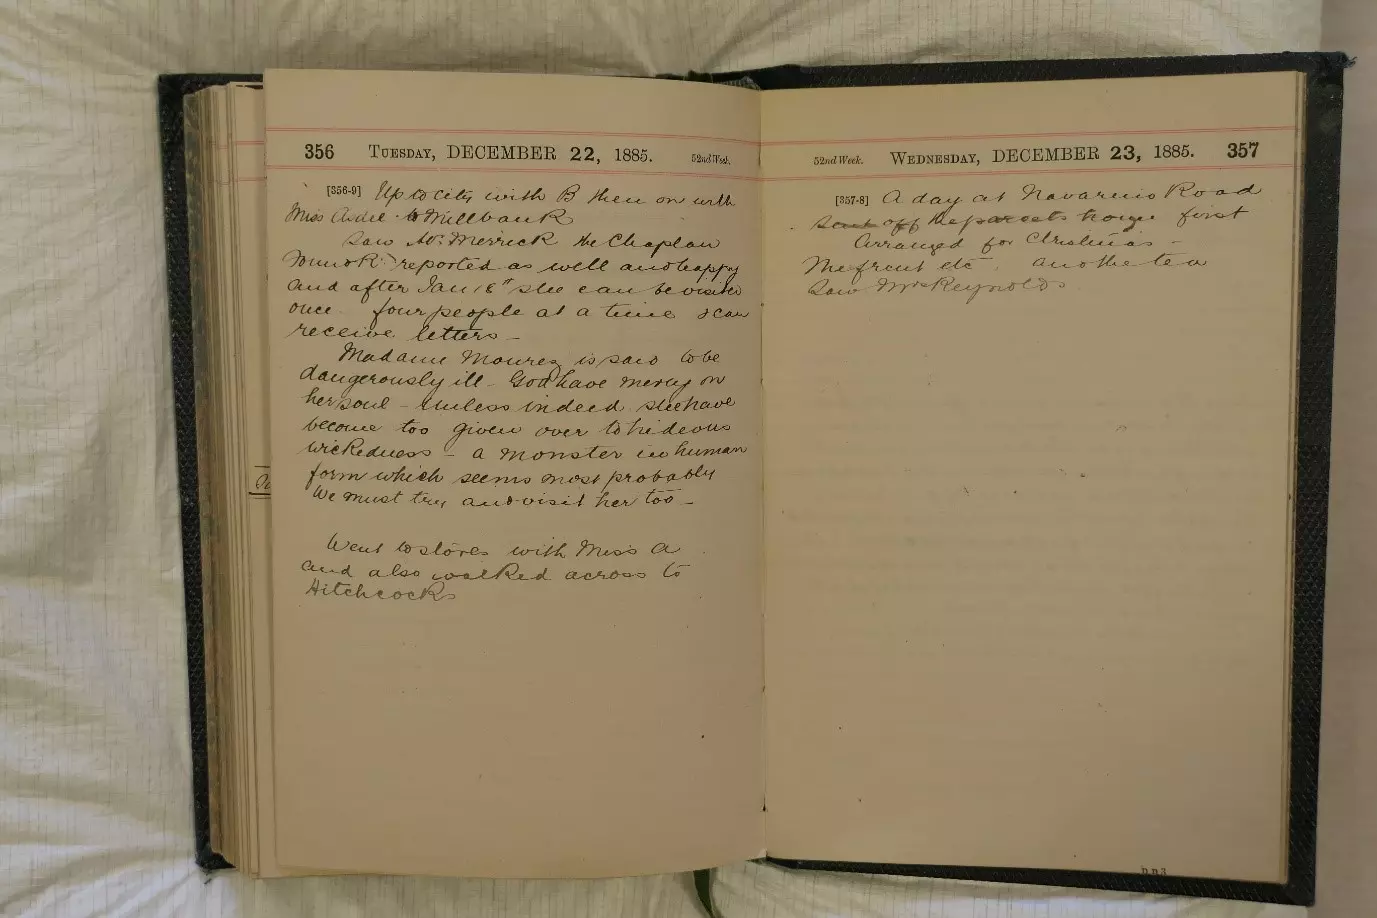 356 TUESDAY, DECEMBER 22, 1885. 52nd Week.
[356-9] Up to city with B then on with
Miss to Millbank
Saw Mr. Merrick the Chaplan
reported as well and happy
and after Jan 18th she can be visited
once four people at a time & can
receive letters –
Madame Mourez is said to be
dangerously ill – God have mercy on
her soul – Unless indeed she have
become too given over to hideous
wickedness – a monster in human
form which seems most probably
We must try and visit her too –
Went to stores with Miss A
and also walked across to
Hitchcocks
52nd Week. WEDNESDAY, DECEMBER 23, 1885. 357
[357-8] A day at Navarino Road
sent off the parcels first
Arranged for Christmas –
The fruit etc and the tea
Saw Mrs Reynolds